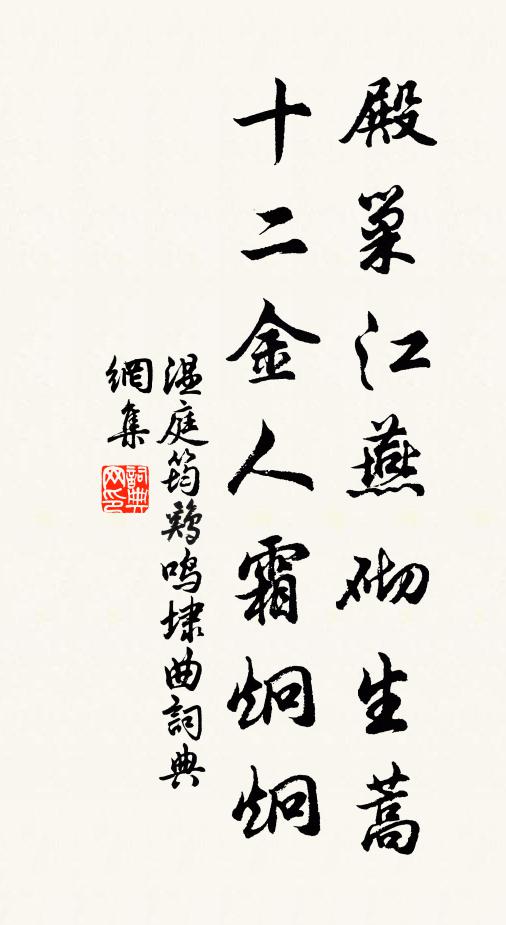 殿巢江燕砌生蒿
十二金人霜炯炯
温庭筠鷄鳴埭曲詞典
網集
詞典網印